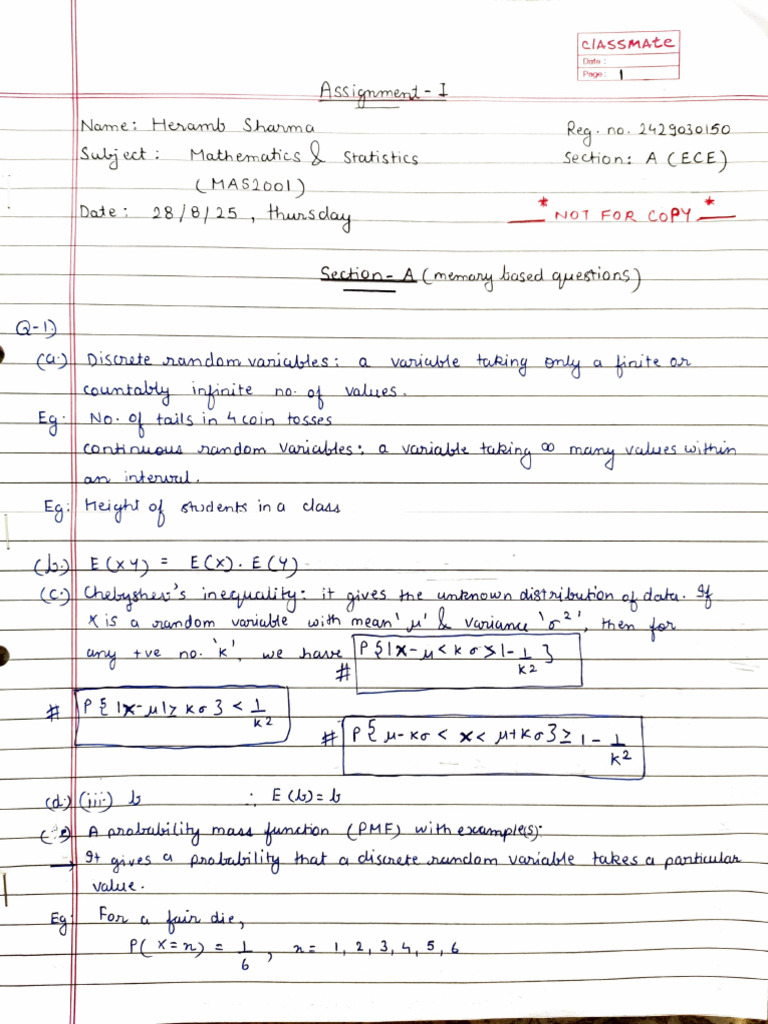 CLASSMATE
Date :
Page: 1
Assignment - I
Name: Heramb Sharma Reg. no. 2429030150
Subject : Mathematics & Statistics Section: A (ECE)
(MAS2001)
Date: 28/8/25 , thursday * NOT FOR COPY *
Section - A (memory based questions)
Q-1)
(a.) Discrete random variables: a variable taking only a finite or
countably infinite no. of values.
Eg: No. of tails in 4 coin tosses
continuous random variables: a variable taking ∞ many values within
an interval.
Eg: Height of students in a class
(b.) E(XY) = E(X). E(Y)
(c.) Chebyshev's inequality: it gives the unknown distribution of data. If
X is a random variable with mean 'μ' & variance 'σ²', then for
any +ve no. 'k', we have P{|X-μ<kσ}>1-1/k²}
#
# P{|X-μ|≥kσ}<1/k²
# P{μ-kσ<x<μ+kσ}≥1-1/k²
(d.) (iii.) b ∴ E(b)=b
A probability mass function (PMF) with example(s):-
→ It gives a probability that a discrete random variable takes a particular
value.
Eg: For a fair die,
P(X=n) = 1/6 , n= 1, 2, 3, 4, 5, 6